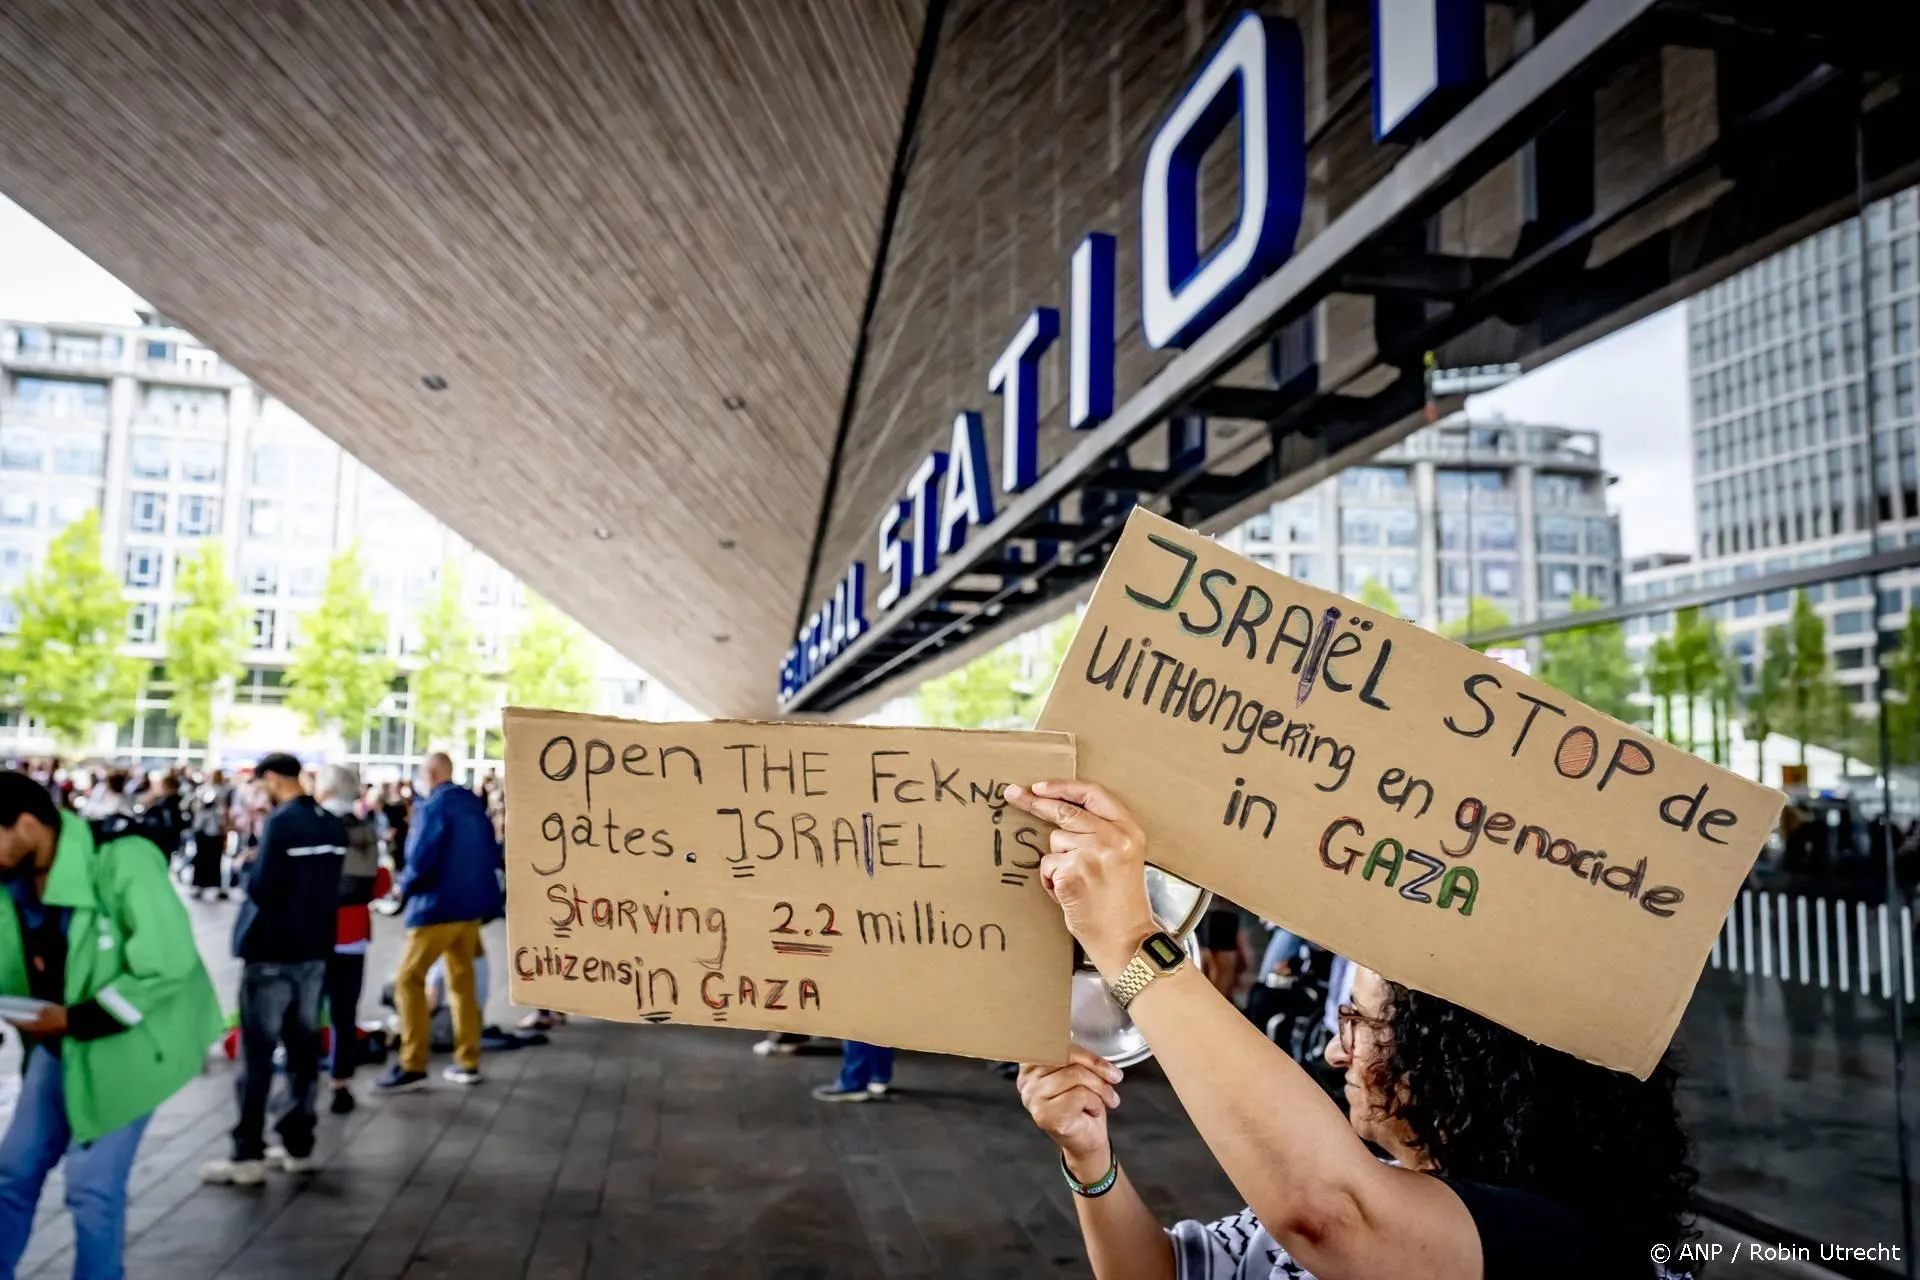 CENTRAAL STATION
open THE FcKNg
gates. ISRAEL is
Starving 2.2 million
citizens in GAZA
ISRAËL STOP de
UITHongeRing en genocide
in GAZA
© ANP / Robin Utrecht